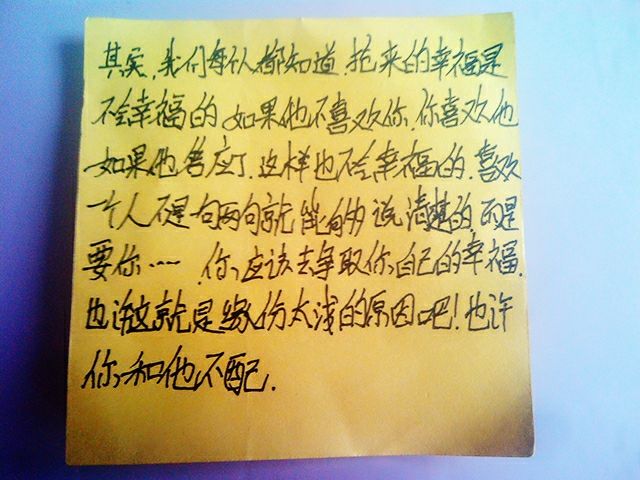 其实,我们每个人都知道,抢来的幸福是
不会幸福的.如果他不喜欢你.你喜欢他
如果他答应了.这样也不会幸福的.喜欢
一个人不是一句两句就能够说清楚的,而是
要你……你应该去争取你自己的幸福.
也许这就是缘份太浅的原因吧!也许
你和他不配.